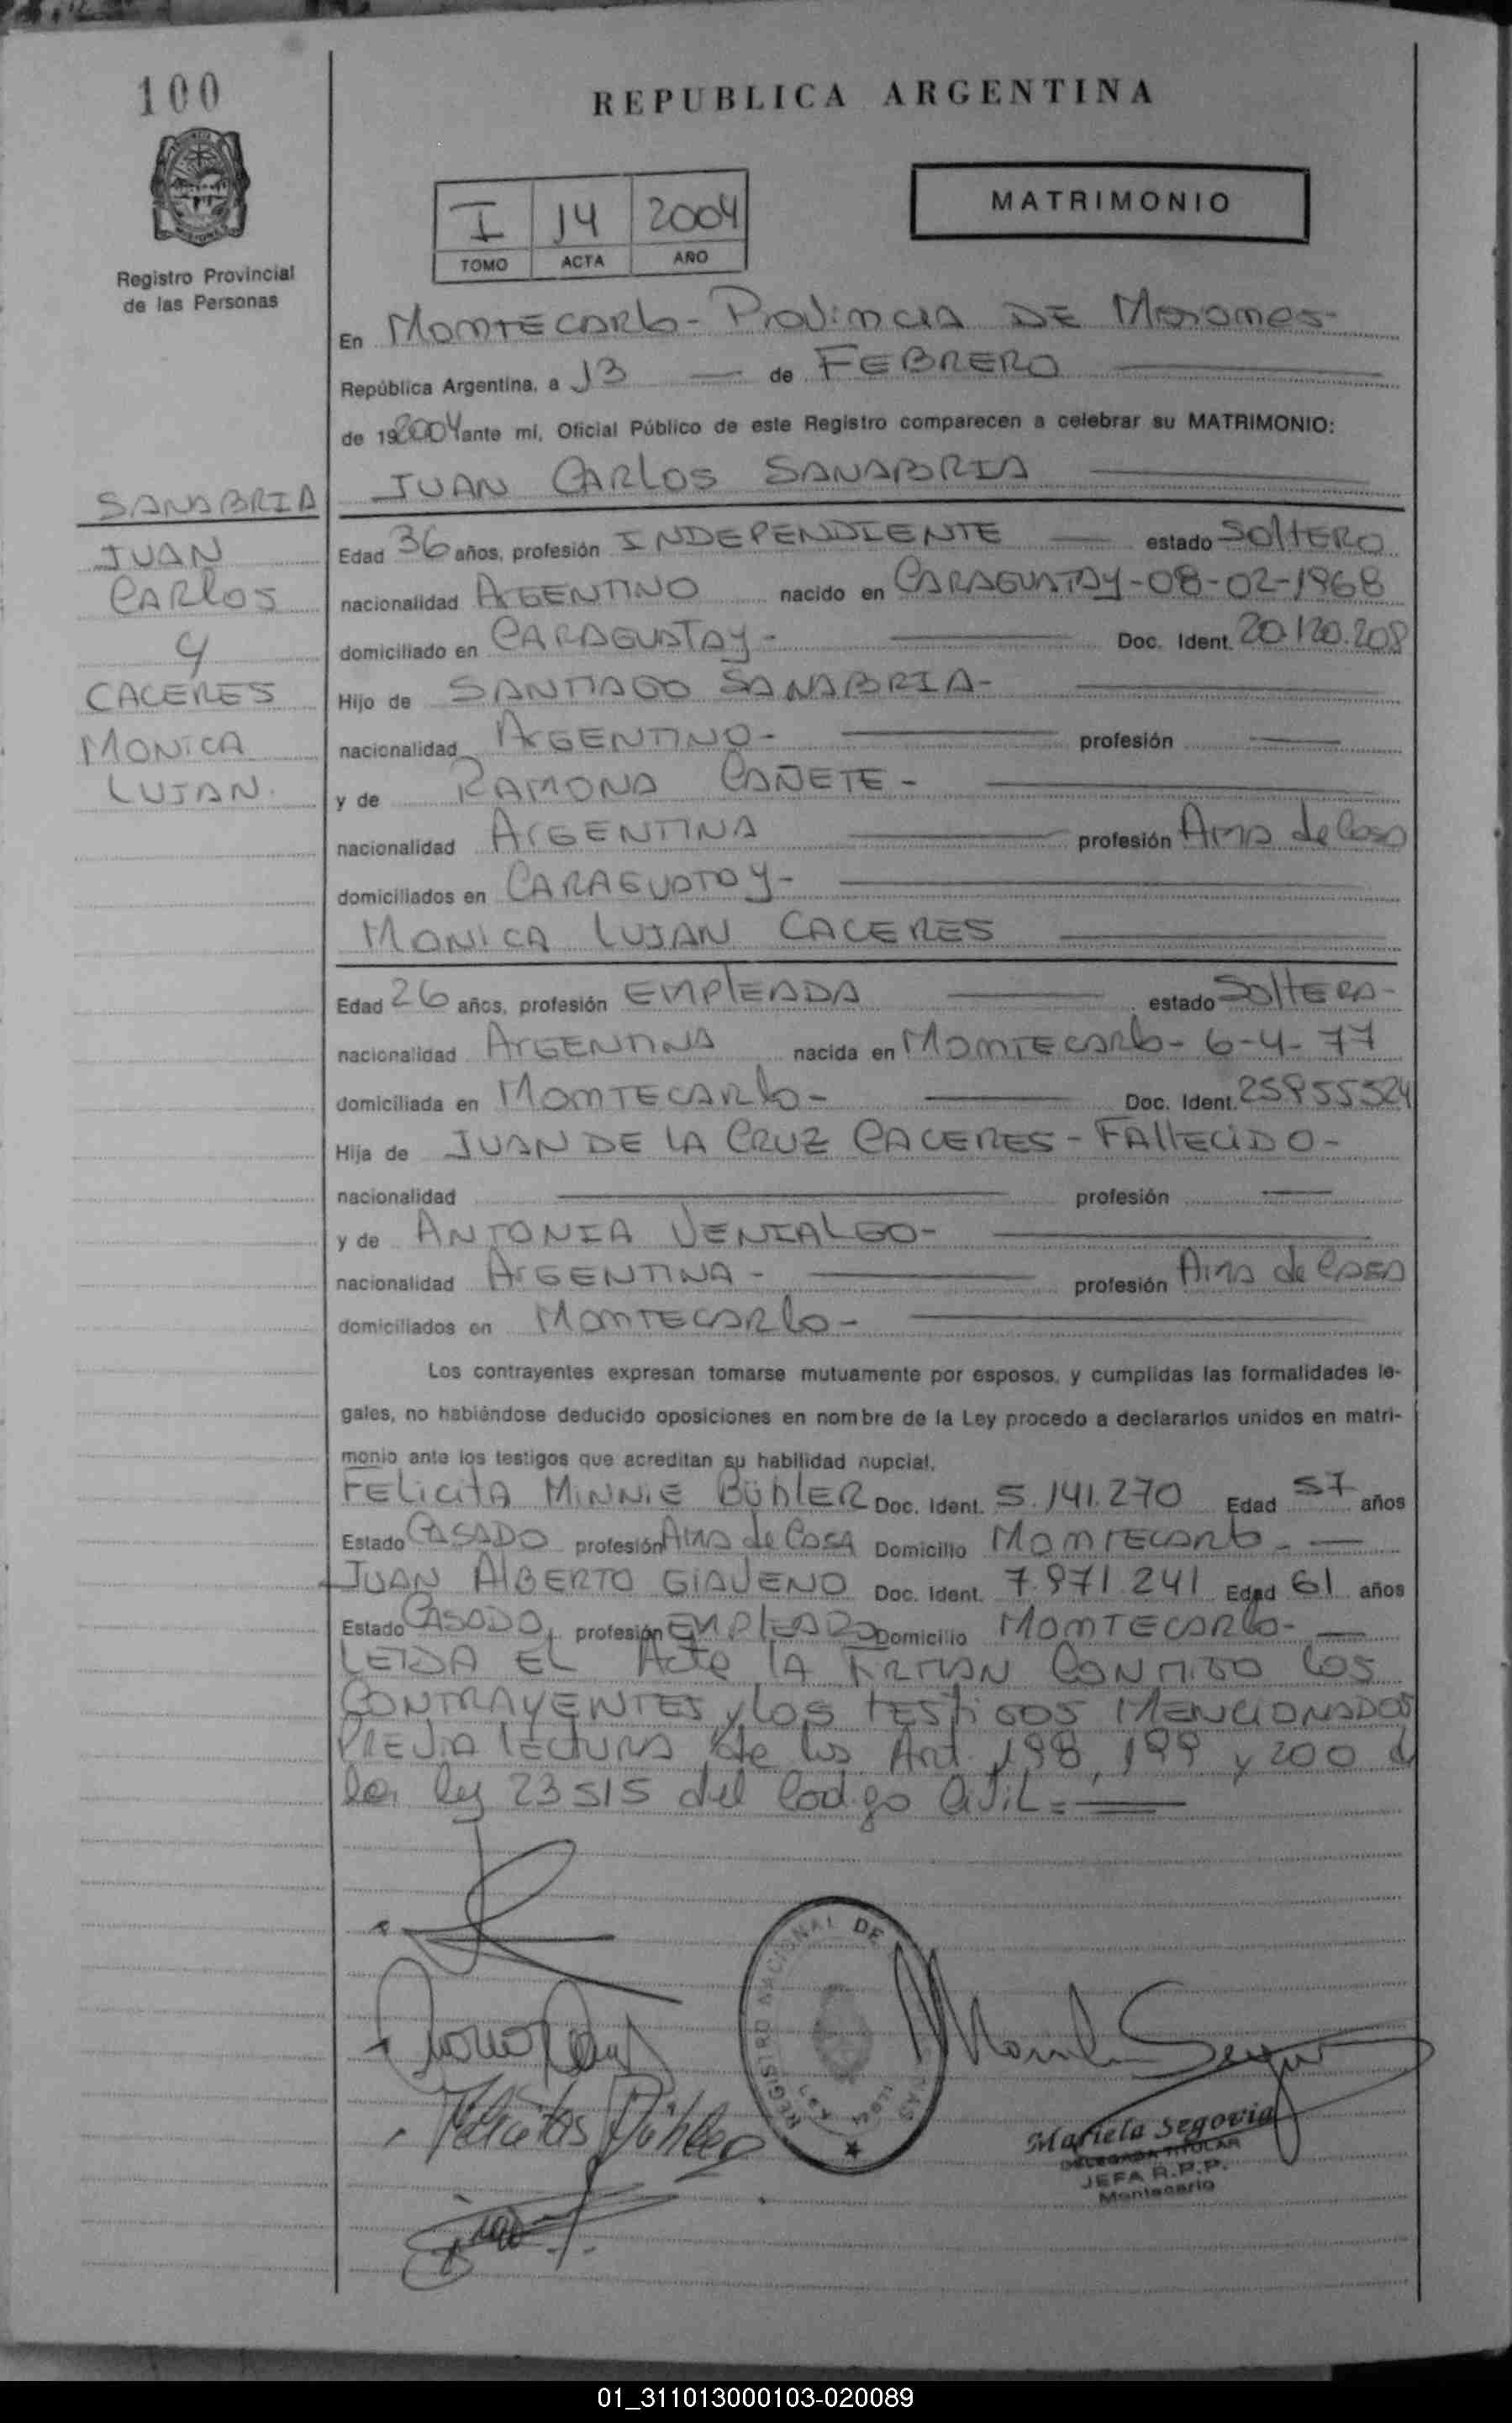 100
REPUBLICA ARGENTINA
I 14 2004
TOMO ACTA AÑO
MATRIMONIO
Registro Provincial
de las Personas
En MONTECARLO - PROVINCIA DE MISIONES-
República Argentina, a 13 — de FEBRERO
de 192004 ante mí, Oficial Público de este Registro comparecen a celebrar su MATRIMONIO:
JUAN CARLOS SANABRIA
SANABRIA
JUAN
CARLOS
Y
CACERES
MONICA
LUJAN.
Edad 36 años, profesión INDEPENDIENTE — estado SOLTERO
nacionalidad ARGENTINO nacido en CARAGUATAY-08-02-1968
domiciliado en CARAGUATAY- Doc. Ident. 20.120.208
Hijo de SANTIAGO SANABRIA-
nacionalidad ARGENTINO- profesión —
y de RAMONA CAÑETE-
nacionalidad ARGENTINA profesión Ama de Casa
domiciliados en CARAGUATAY-
MONICA LUJAN CACERES
Edad 26 años, profesión EMPLEADA estado SOLTERA-
nacionalidad ARGENTINA nacida en MONTECARLO- 6-4-77
domiciliada en MONTECARLO- Doc. Ident. 25855524
Hija de JUAN DE LA CRUZ CACERES - FALLECIDO-
nacionalidad — profesión —
y de ANTONIA VENIALGO-
nacionalidad ARGENTINA- profesión Ama de CASA
domiciliados en MONTECARLO-
Los contrayentes expresan tomarse mutuamente por esposos, y cumplidas las formalidades le-
gales, no habiéndose deducido oposiciones en nombre de la Ley procedo a declararlos unidos en matri-
monio ante los testigos que acreditan su habilidad nupcial.
FELICITA MINNIE BÜHLER Doc. Ident. 5.141.270 Edad 57 años
Estado CASADO profesión AMA de CASA Domicilio MONTECARLO- —
JUAN ALBERTO GIAVENO Doc. Ident. 7.971.241 Edad 61 años
Estado CASADO profesión EMPLEADO Domicilio MONTECARLO- —
LEIDA EL Acta LA FIRMAN CONMIGO LOS
CONTRAYENTES y LOS TESTIGOS MENCIONADOS
PREVIA LECTURA de los Art. 198, 199 y 200 d
la ley 23515 del Codigo CIVIL.=
REGISTRO NACIONAL DE
Felicitas Bühler
Mariela Segovia
DELEGADA TITULAR
JEFA R.P.P.
Montecarlo
01_311013000103-020089